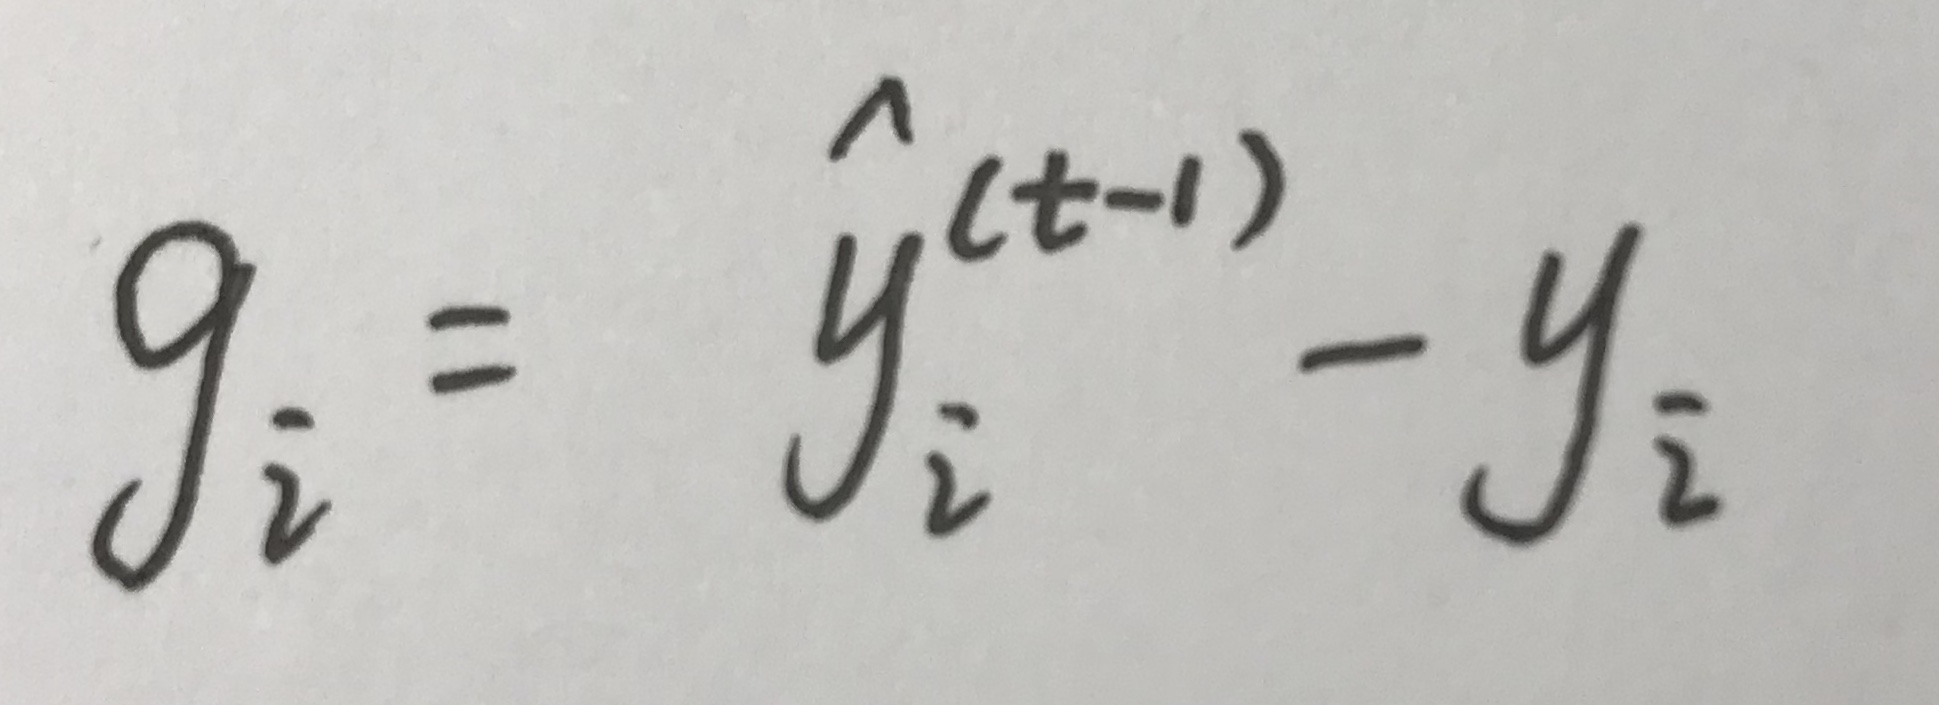 g_i = ŷ_i^(t-1) - y_i